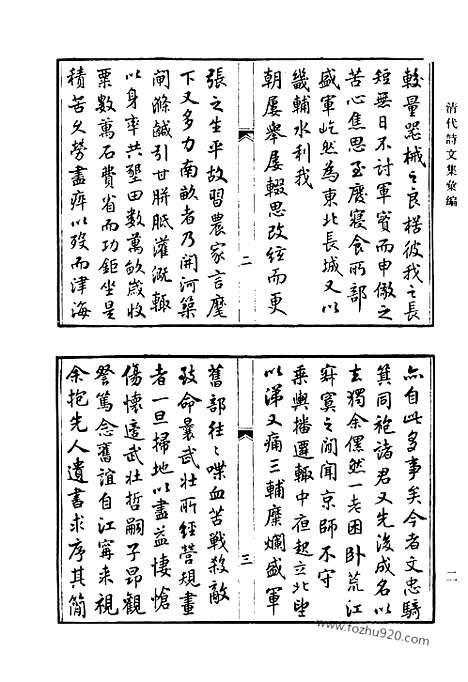 清代詩文集彙編
較量器械之良楛彼我之長
短無日不討軍實而申儆之
苦心焦思至廢寢食所部
盛軍屹然為東北長城又以
畿輔水利我
朝屢舉屢輟思改絃而更
二
張之生平故習農家言麾
下又多力南畝者乃開河築
閘滌鹹引甘胼胝灌溉輒
以身率共墾田數萬畝歲收
粟數萬石費省而功鉅坐是
積苦久勞盡瘁以歿而津海
一一
亦自此多事矣今者文忠騎
箕同袍諸君又先後成名以
去獨余傫然一老困臥荒江
寂寞之間聞京師不守
乘輿播遷輒中夜起立北望
以涕又痛三輔糜爛盛軍
三
舊部往〻喋血苦戰殺敵
致命曩武壯所經營規畫
者一旦掃地以盡益悽愴
傷懷適武壯哲嗣子昂觀
詧篤念舊誼自江甯來視
余抱先人遺書求序其簡
www.fozhu920.com